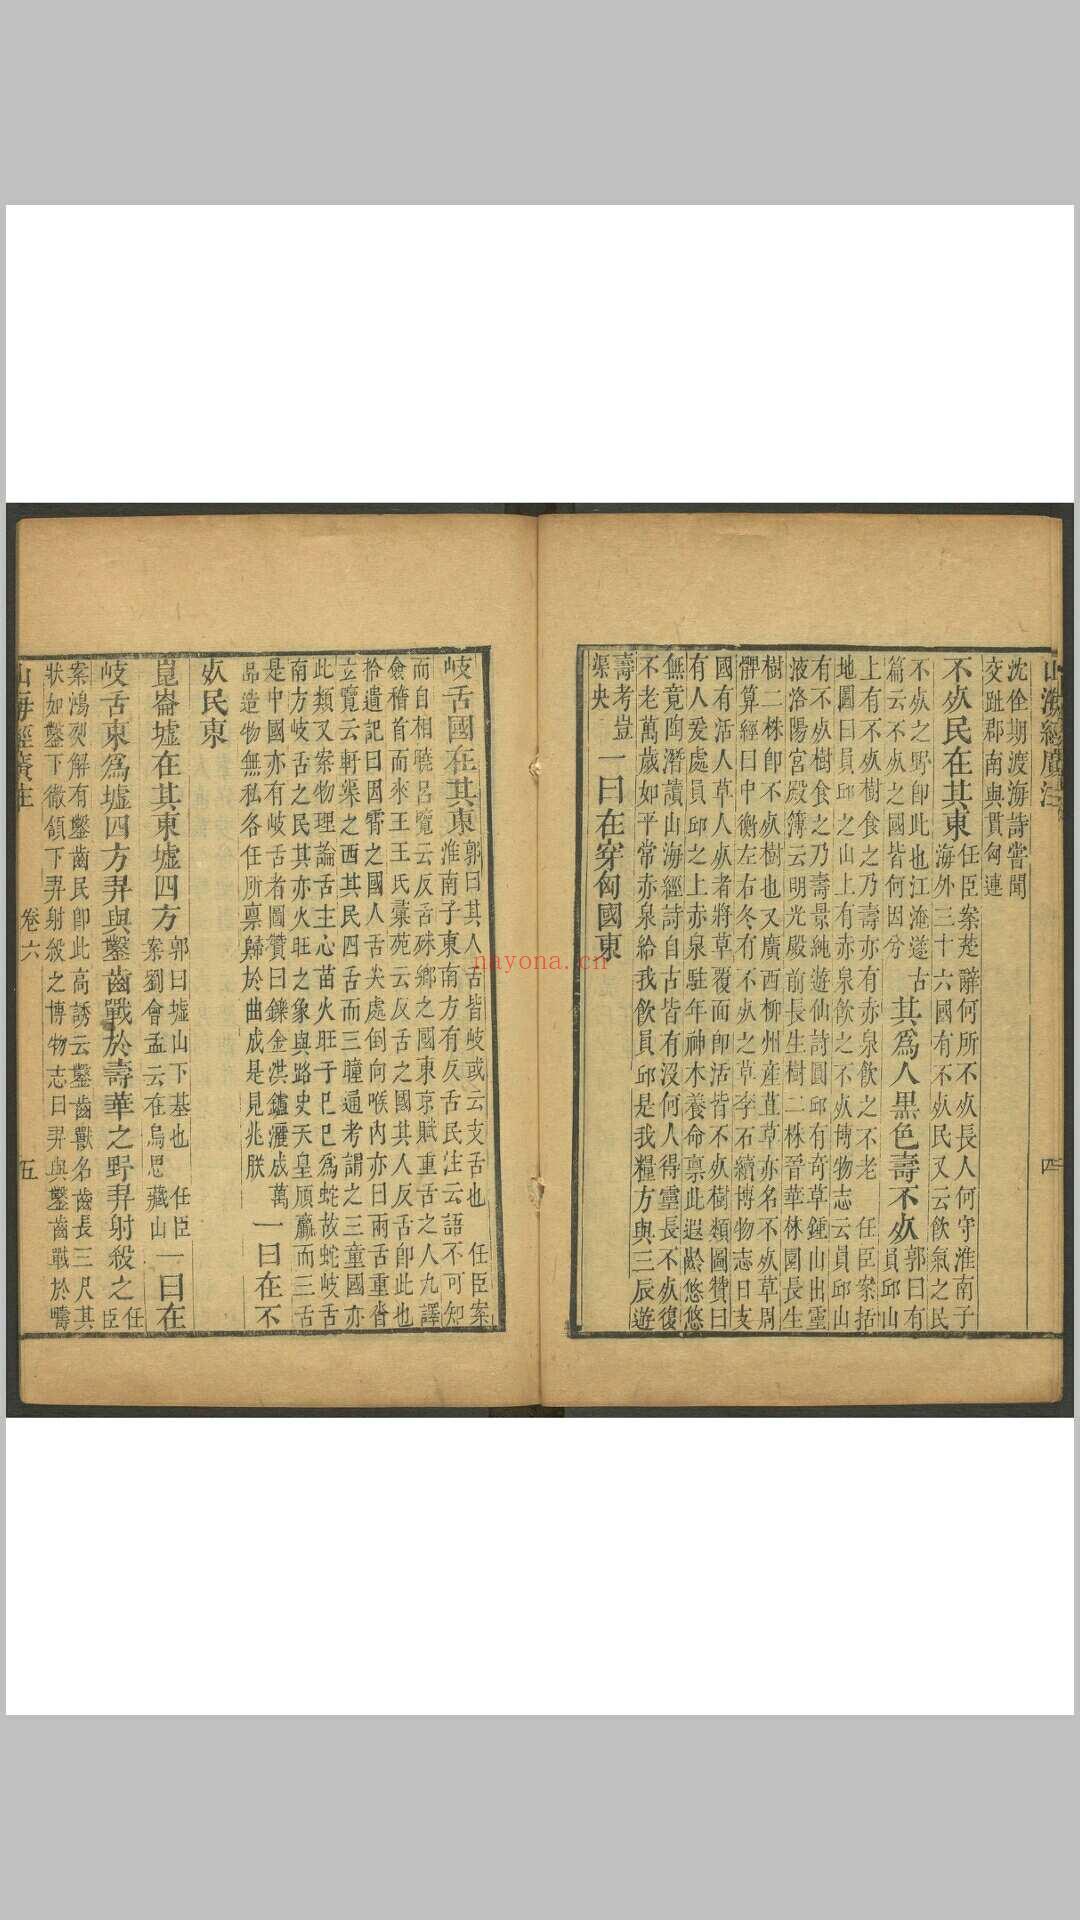 山海經廣注
四
沈佺期渡海詩嘗聞
交趾郡南與貫匈連
不㱙民在其東
任臣案楚辭何所不㱙長人何守淮南子
海外三十六國有不㱙民又云飲氣之民
不㱙之野即此也江淹遂古
篇云不㱙之國皆何因兮
其爲人黒色壽不㱙
郭曰有
員邱山
上有不㱙樹食之乃壽亦有赤泉飲之不老 任臣案括
地圖曰員邱之山上有赤泉飲之不㱙博物志云員邱山
有不㱙樹食之乃壽景純遊仙詩圓邱有奇草鍾山出靈
液洛陽宮殿簿云明光殿前長生樹二株晉華林園長生
樹二株即不㱙樹也又廣西柳州產苴草亦名不㱙草周
髀算經曰中衡左右冬有不㱙之草李石續博物志曰支
國有活人草人㱙者將草覆面即活皆不㱙樹類圖贊曰
有人爰處員邱之上赤泉駐年神木養命禀此遐齡悠悠
無竟陶潛讀山海經詩自古皆有沒何人得靈長不㱙復
不老萬歲如平常赤泉給我飲員邱是我糧方與三辰遊
壽考豈
渠央
一曰在穿匈國東
岐舌國在其東
郭曰其人舌皆岐或云支舌也 任臣案
淮南子東南方有反舌民注云語不可知
而自相曉呂覽云反舌殊鄉之國東京賦重舌之人九譯
僉稽首而來王王氏彚苑云反舌之國其人反舌即此也
拾遺記曰因霄之國人舌尖處倒向喉內亦曰兩舌重沓
玄覽云軒渠之西其民四舌而三瞳通考謂之三童國亦
此類又案物理論舌主心苗火旺于巳巳爲蛇故蛇岐舌
南方岐舌之民其亦火旺之象與路史天皇頎羸而三舌
是中國亦有岐舌者圖贊曰鑠金洪鑪灑成萬
品造物無私各任所禀歸於曲成是見兆朕
一曰在不
㱙民東
崑崙墟在其東墟四方
郭曰墟山下基也 任臣
案劉會孟云在烏思藏山
一曰在
岐舌東爲墟四方羿與鑿齒戰於壽華之野羿射殺之
任
臣
案鴻烈解有鑿齒民即此高誘云鑿齒獸名齒長三尺其
狀如鑿下徹頷下羿射殺之博物志曰羿與鑿齒戰於疇
山海經廣注
卷六
五
nayona.cn